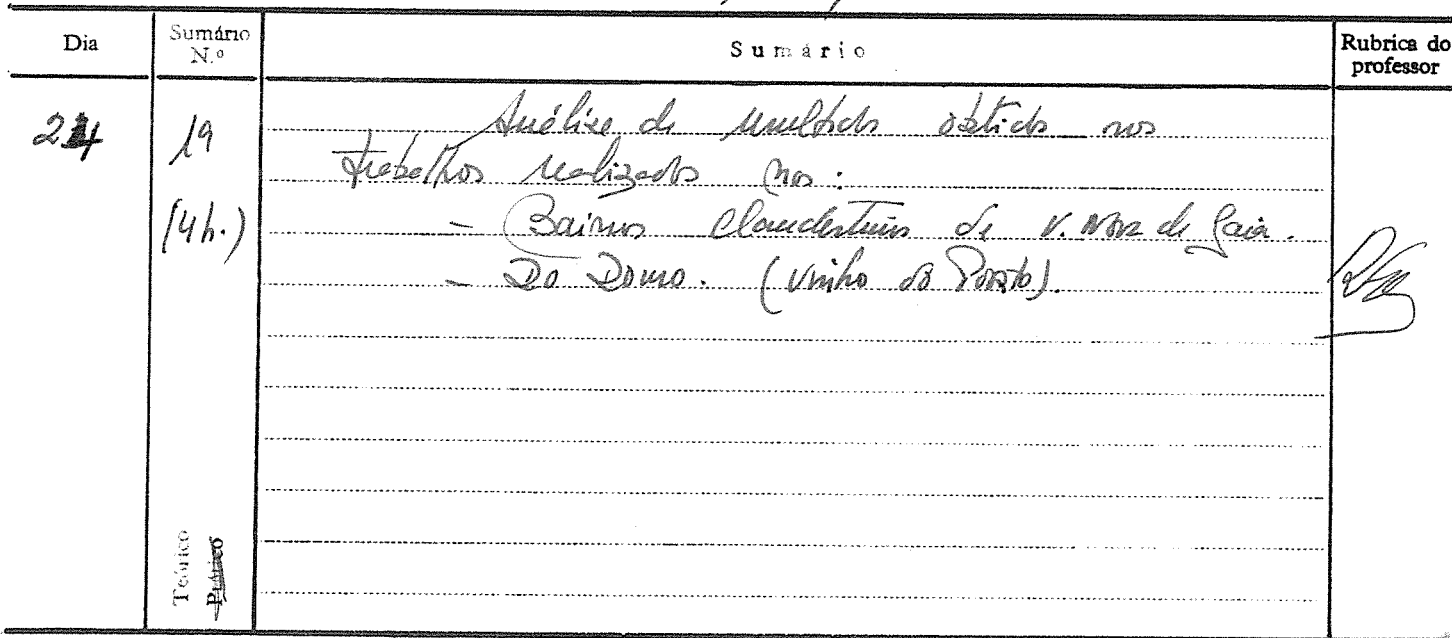 Dia
Sumário N.º
Sumário
Rubrica do professor
24
19
(4h.)
Análise de resultados obtidos nos
trabalhos realizados nos:
- Bairros Clandestinos de V. Nova de Gaia.
- Do Douro. (Vinho do Porto).
Teórico
Prático